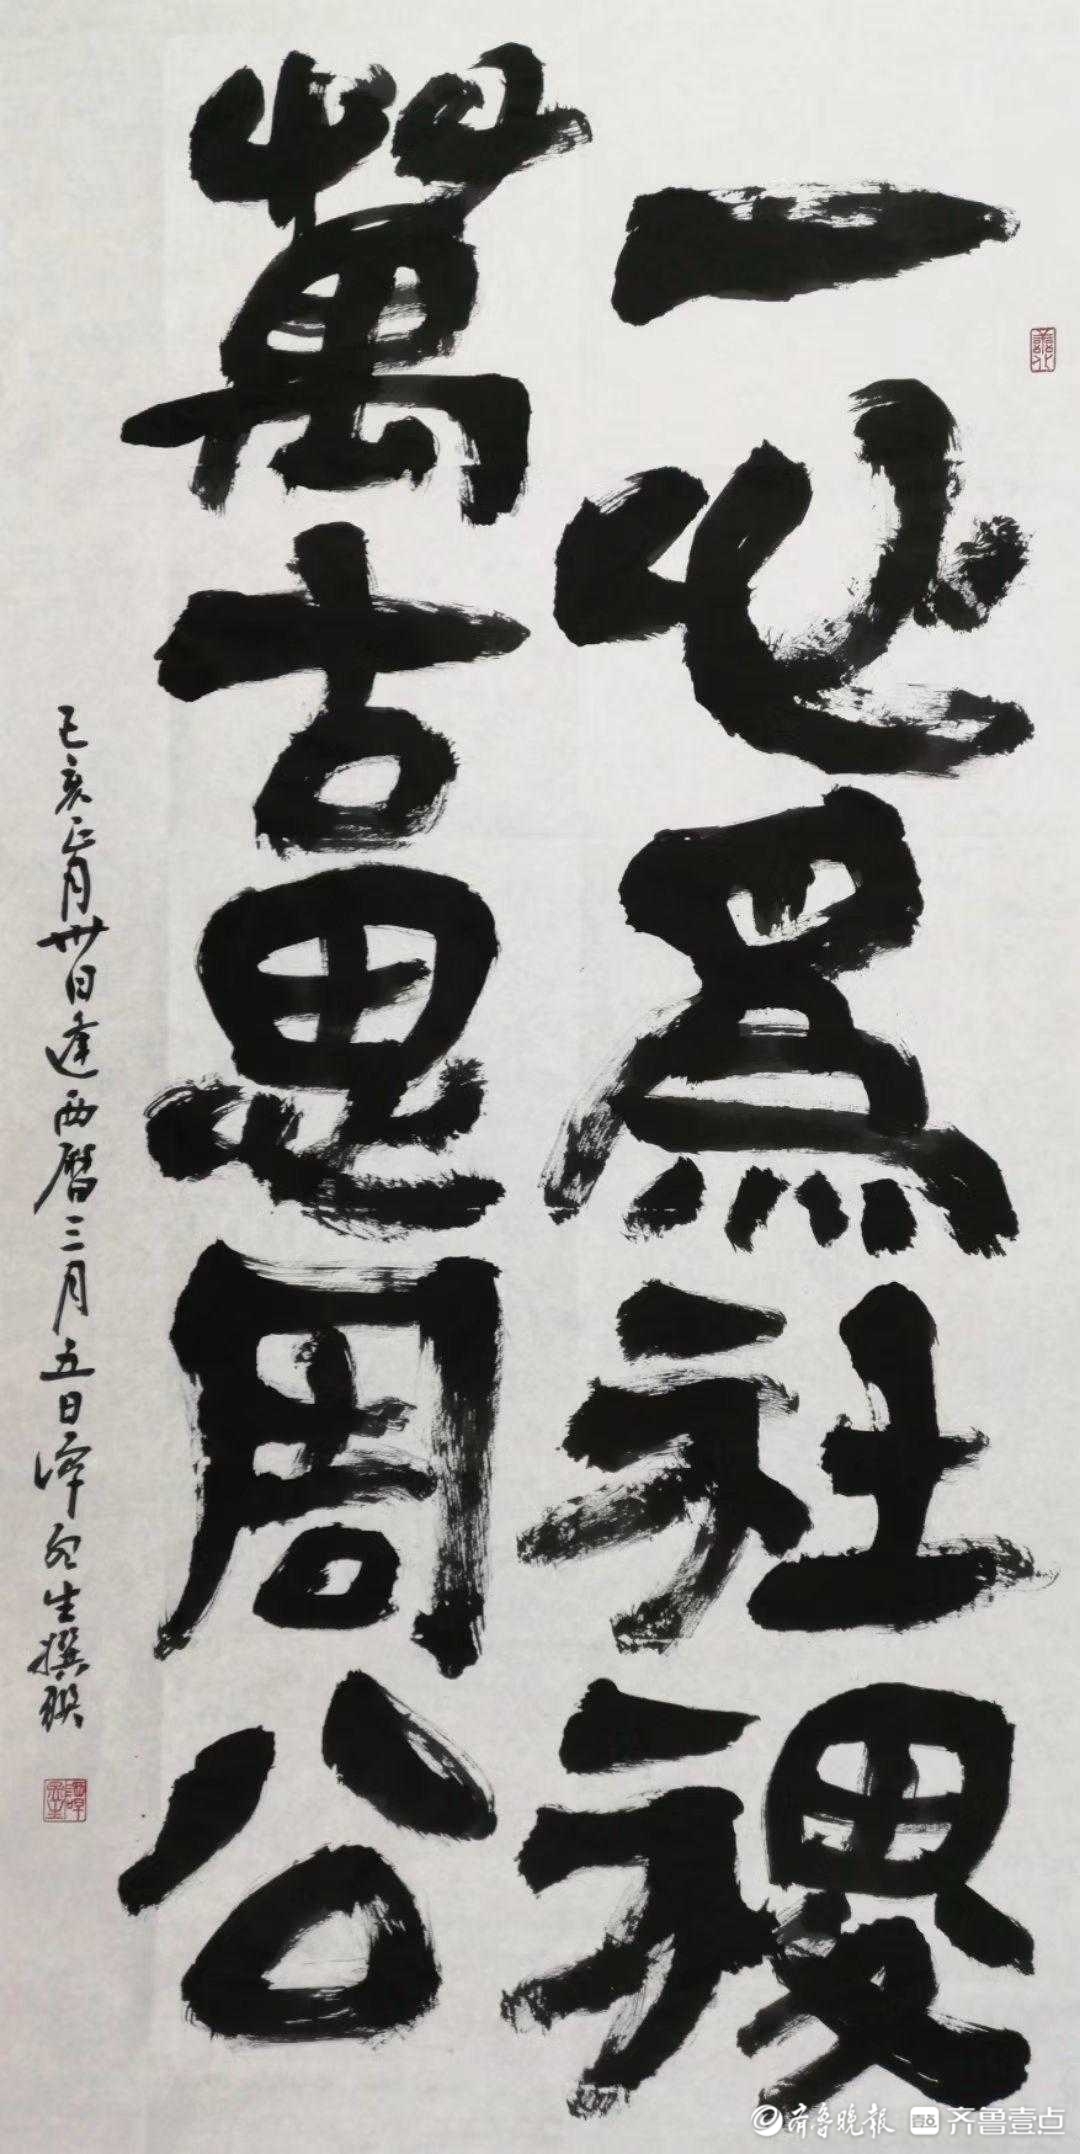 一心為社稷
萬古思周公
己亥正月卅日逢西曆三月五日譚然生撰聯
齐鲁晚报 齐鲁壹点